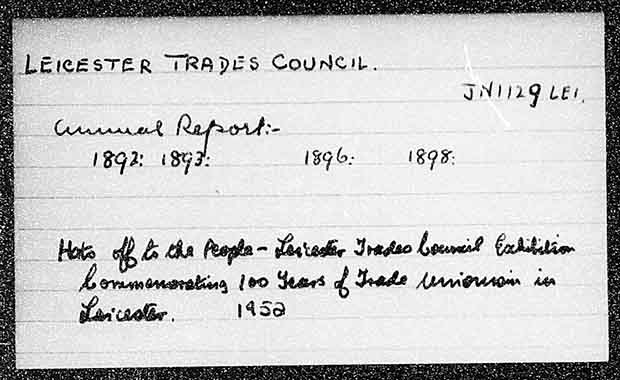 LEICESTER TRADES COUNCIL.
JN1129 LEI.
Annual Report:-
1892: 1893: 1896: 1898:
Hats off to the People - Leicester Trades Council Exhibition
Commemorating 100 Years of Trade Unionism in
Leicester. 1952